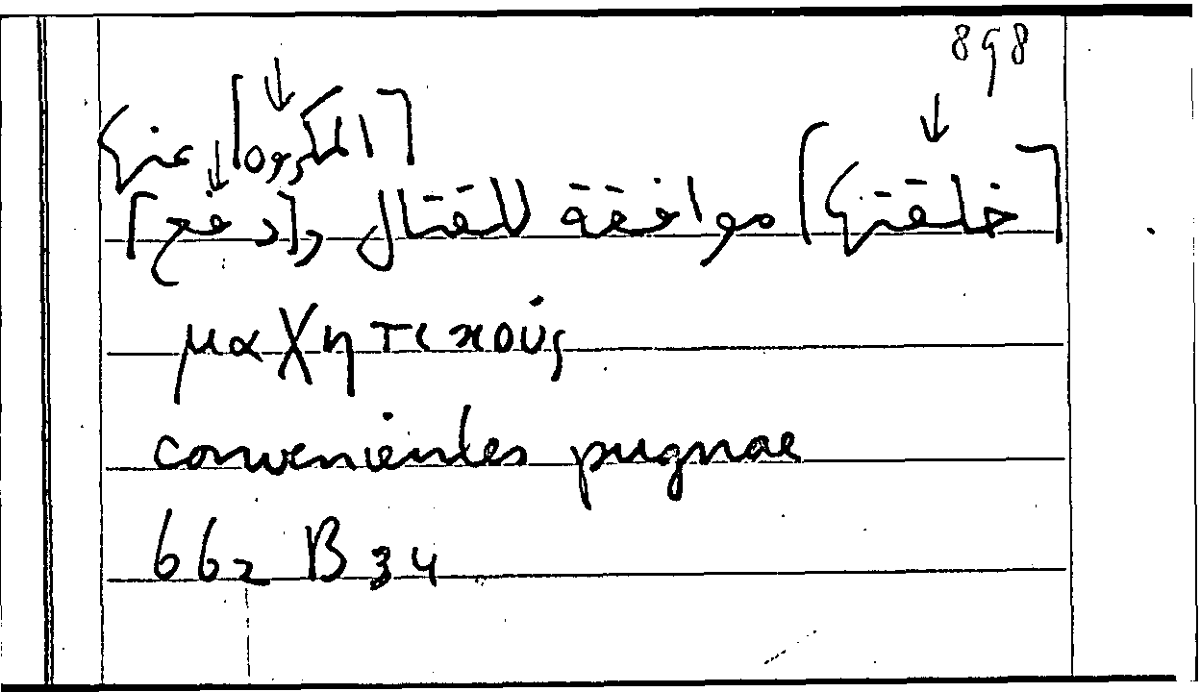 898
[المكروه] عنها
[خلقتها] موافقة للقتال و[دفع]
μαχητικούς
convenientes pugnae
662 B 34